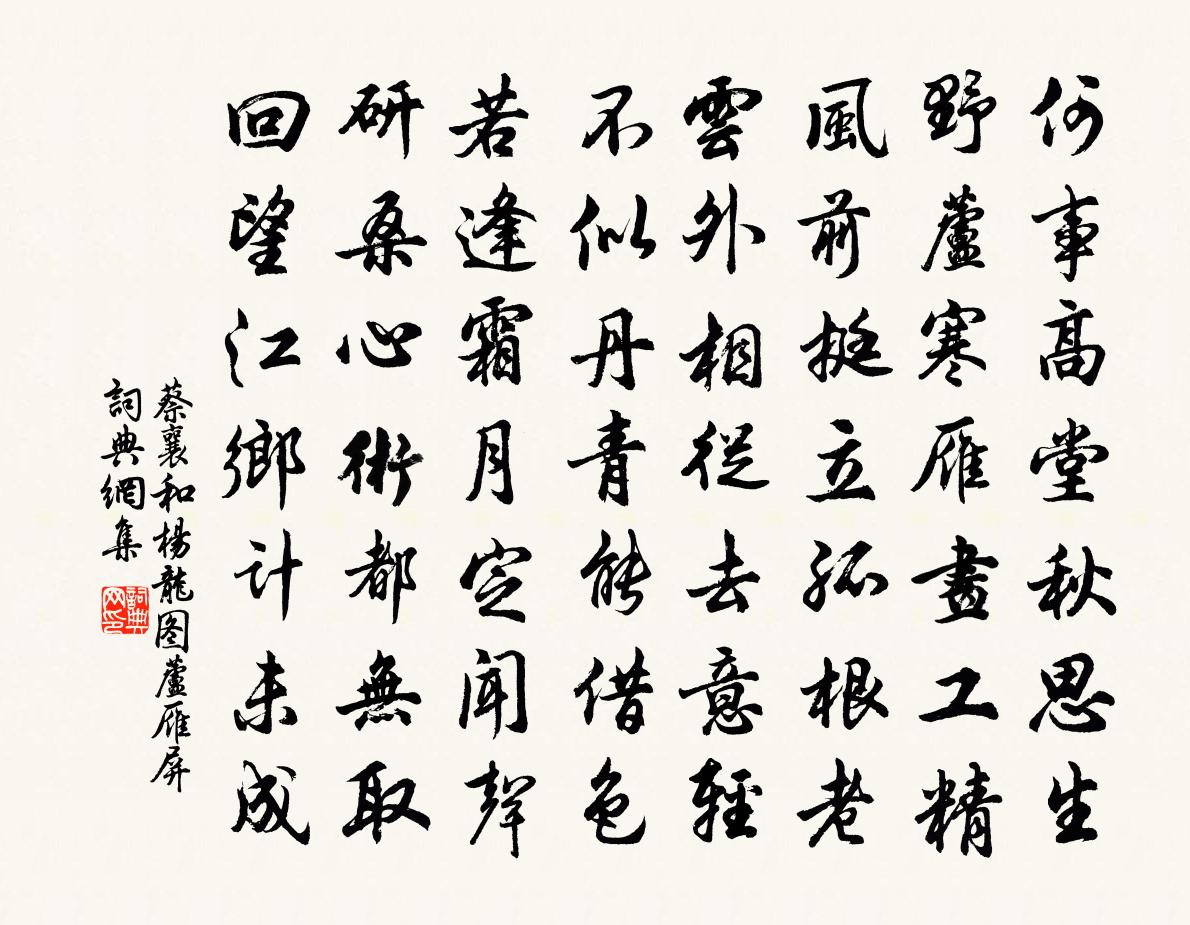 何事高堂秋思生
野蘆寒雁畫工精
風前挺立孤根老
雲外相從去意輕
不似丹青能借色
若逢霜月定聞聲
研桑心術都無取
回望江鄉計未成
蔡襄和楊龍图蘆雁屏
詞典網集
詞典网印